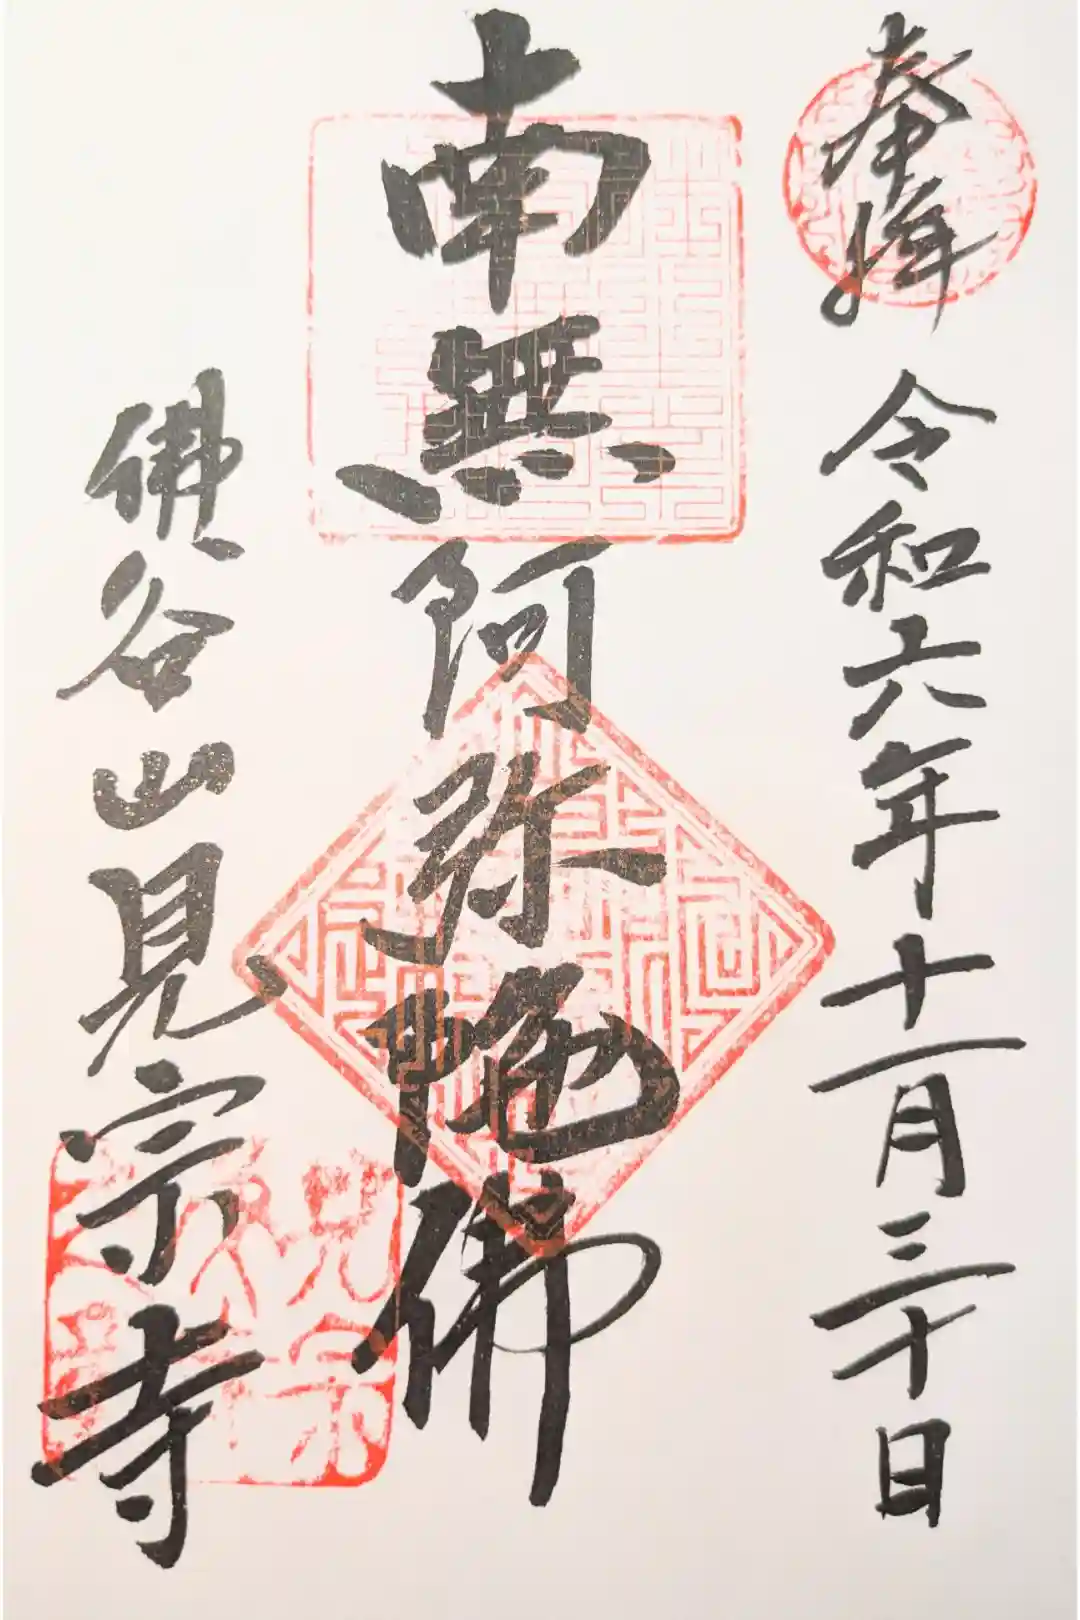 奉拝 令和六年十一月三十日
南無阿弥陀佛
佛谷山見宗寺